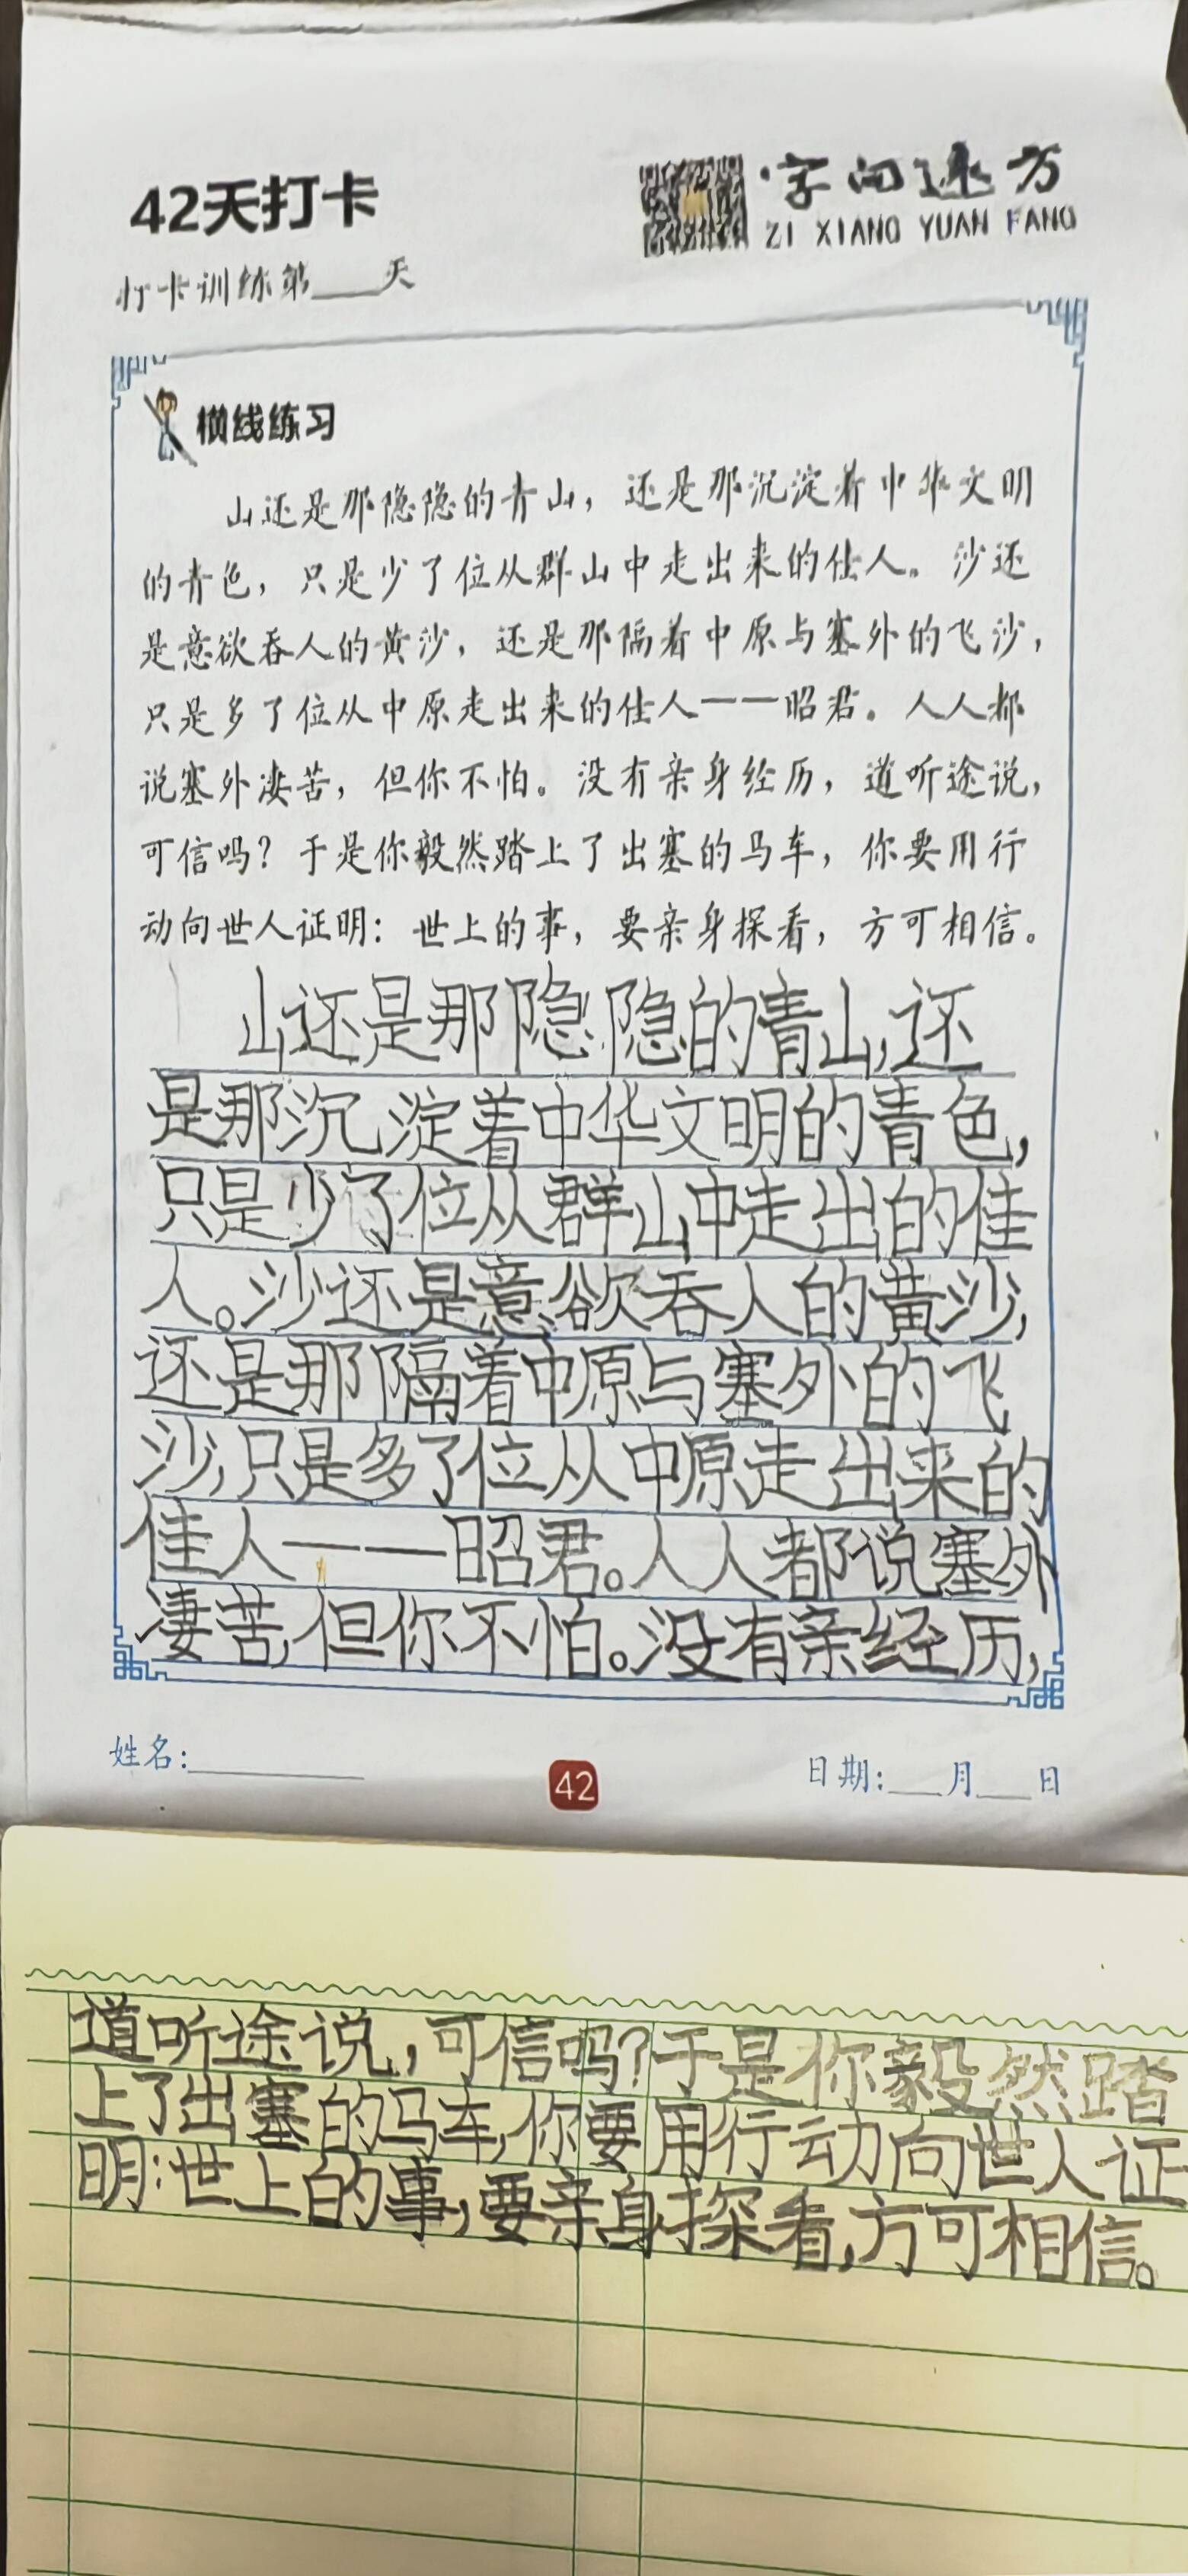 42天打卡
字向远方
ZI XIANG YUAN FANG
打卡训练第____天
横线练习
山还是那隐隐的青山，还是那沉淀着中华文明
的青色，只是少了位从群山中走出来的佳人。沙还
是意欲吞人的黄沙，还是那隔着中原与塞外的飞沙，
只是多了位从中原走出来的佳人——昭君。人人都
说塞外凄苦，但你不怕。没有亲身经历，道听途说，
可信吗？于是你毅然踏上了出塞的马车，你要用行
动向世人证明：世上的事，要亲身探看，方可相信。
山还是那隐隐的青山，还
是那沉淀着中华文明的青色，
只是少了位从群山中走出的佳
人。沙还是意欲吞人的黄沙，
还是那隔着中原与塞外的飞
沙，只是多了位从中原走出来的
佳人——昭君。人人都说塞外
凄苦，但你不怕。没有亲经历，
姓名：________
42
日期：___月___日
道听途说，可信吗？于是你毅然踏
上了出塞的马车，你要用行动向世人证
明：世上的事，要亲身探看，方可相信。